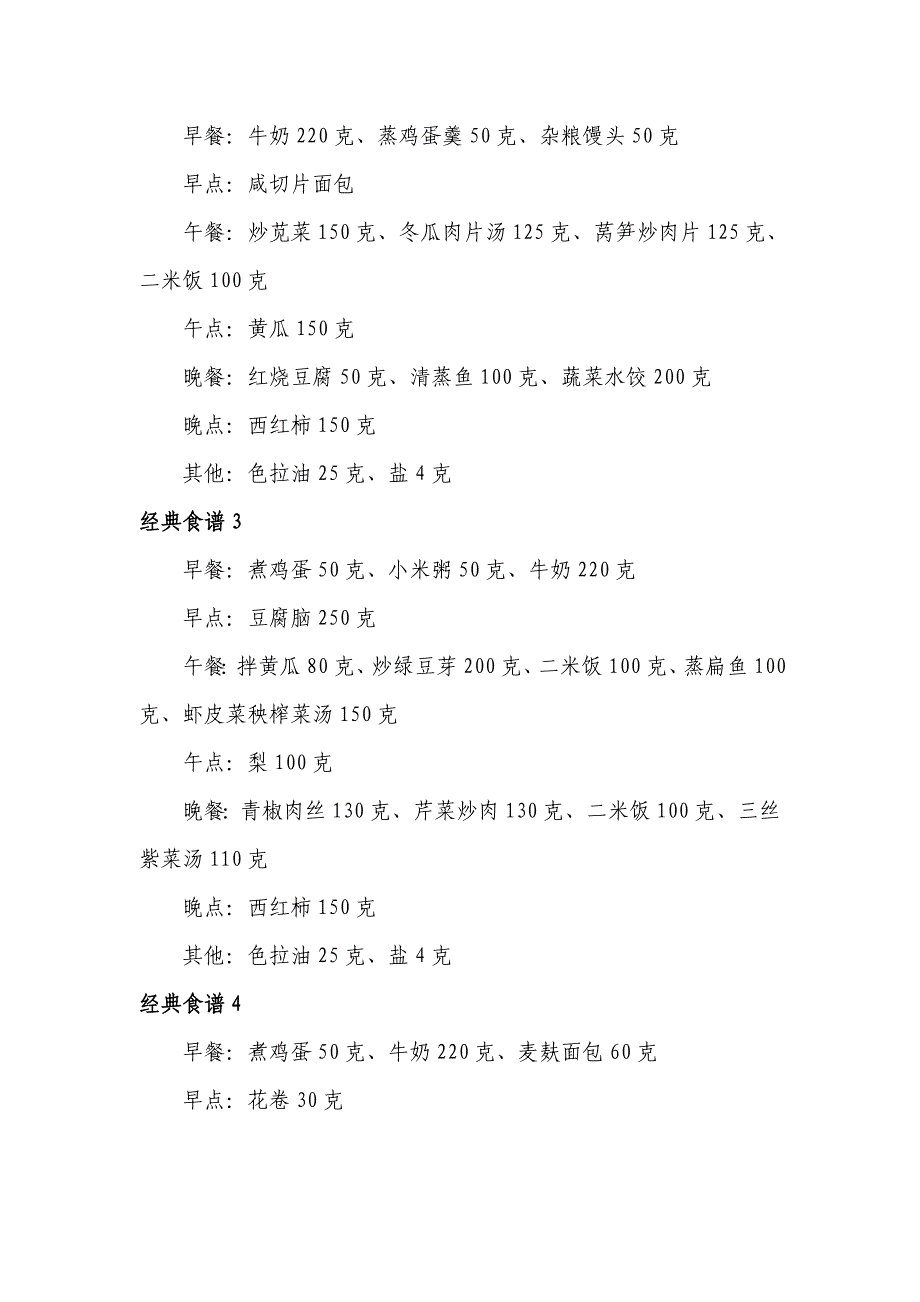 早餐：牛奶 220 克、蒸鸡蛋羹 50 克、杂粮馒头 50 克
早点：咸切片面包
午餐：炒苋菜 150 克、冬瓜肉片汤 125 克、莴笋炒肉片 125 克、
二米饭 100 克
午点：黄瓜 150 克
晚餐：红烧豆腐 50 克、清蒸鱼 100 克、蔬菜水饺 200 克
晚点：西红柿 150 克
其他：色拉油 25 克、盐 4 克
经典食谱 3
早餐：煮鸡蛋 50 克、小米粥 50 克、牛奶 220 克
早点：豆腐脑 250 克
午餐：拌黄瓜 80 克、炒绿豆芽 200 克、二米饭 100 克、蒸扁鱼 100
克、虾皮菜秧榨菜汤 150 克
午点：梨 100 克
晚餐：青椒肉丝 130 克、芹菜炒肉 130 克、二米饭 100 克、三丝
紫菜汤 110 克
晚点：西红柿 150 克
其他：色拉油 25 克、盐 4 克
经典食谱 4
早餐：煮鸡蛋 50 克、牛奶 220 克、麦麸面包 60 克
早点：花卷 30 克